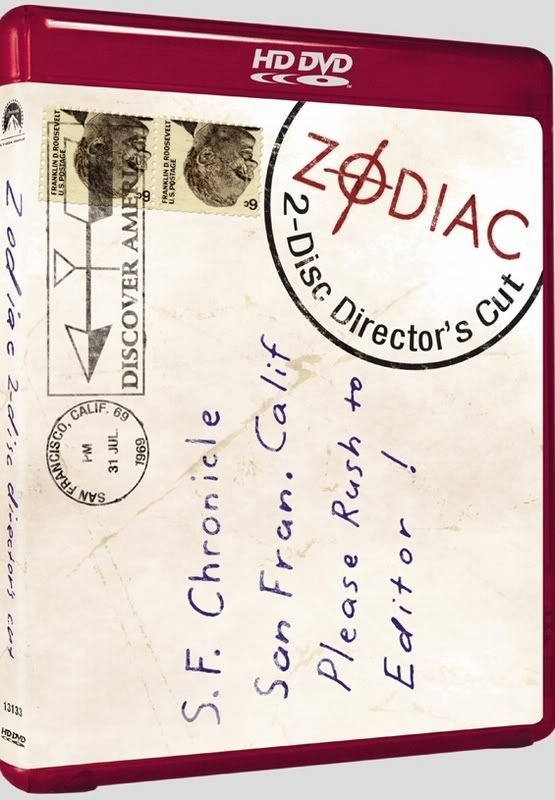 HD DVD
FRANKLIN D. ROOSEVELT
U.S. POSTAGE
6¢
FRANKLIN D. ROOSEVELT
U.S. POSTAGE
6¢
DISCOVER AMERICA
SAN FRANCISCO, CALIF. 69
PM
31 JUL
1969
ZODIAC
2-Disc Director's Cut
S.F. Chronicle
San Fran. Calif
Please Rush to
Editor!
Zodiac 2-disc director's cut
13133
HD DVD